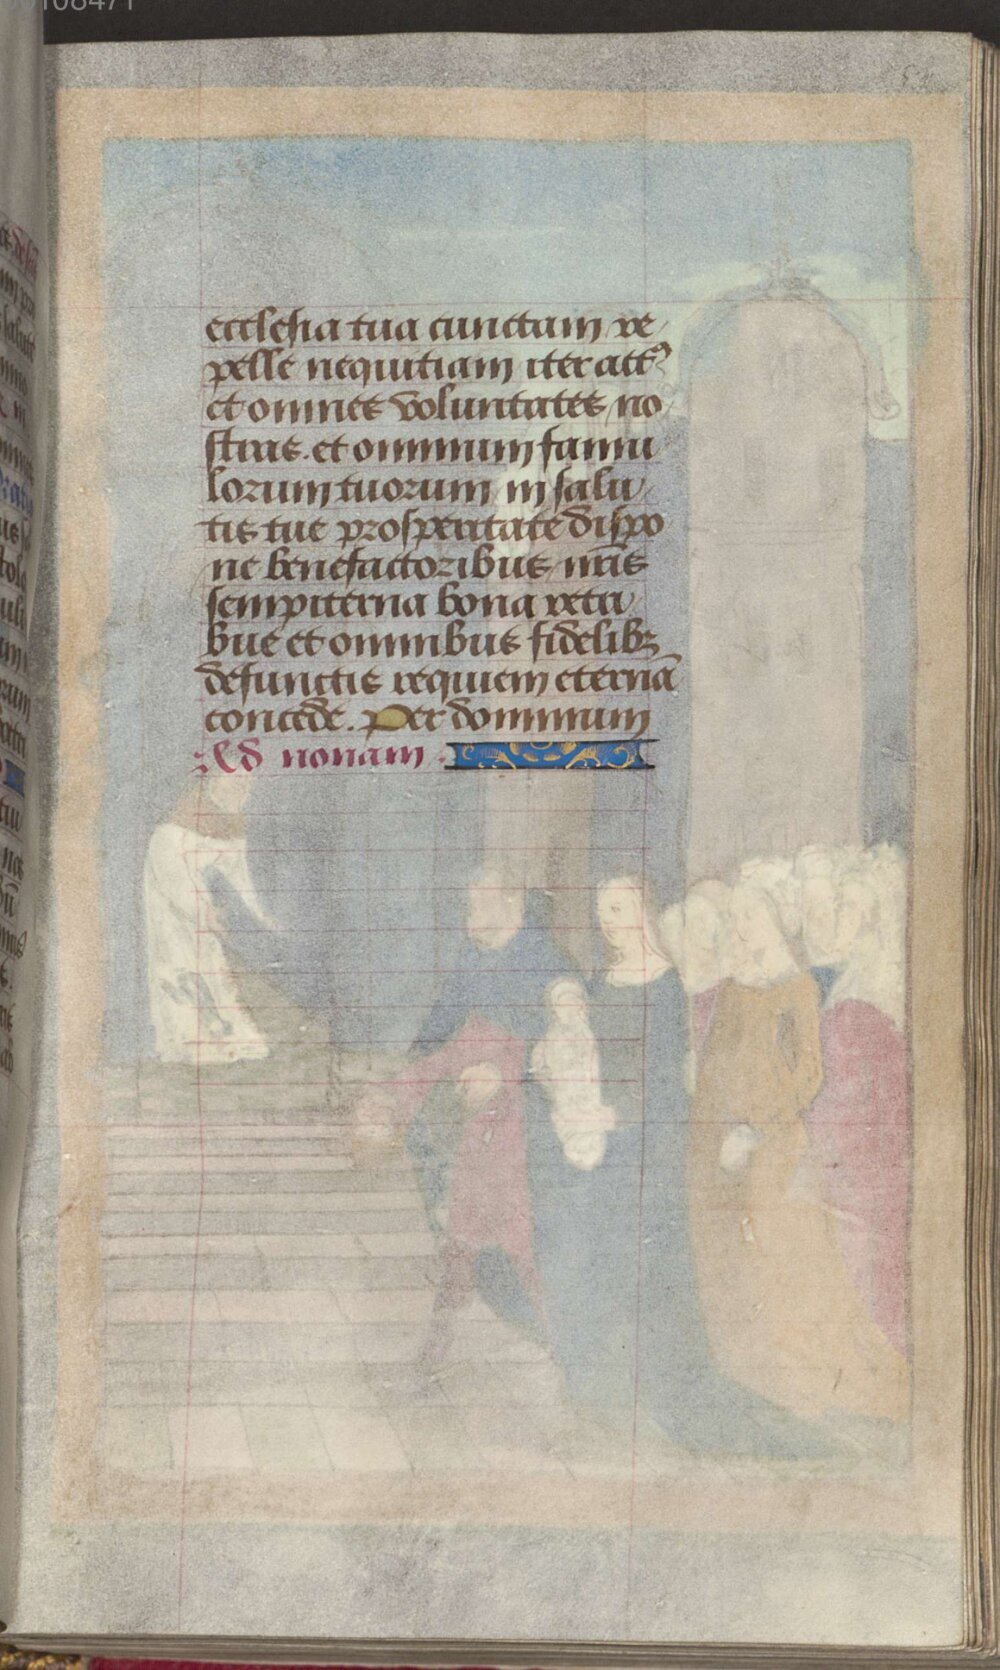 ecclesia tua cunctam re
pelle nequitiam iter actꝰ
et omnes voluntates no
stras. et omnium famu
lorum tuorum in salu
tis tue prosperitate dispo
ne benefactoribus nr̄is
sempiterna bona retri
bue et omnibus fidelibꝫ
defunctis requiem eternā
concede. Per dominum
Ad nonam.